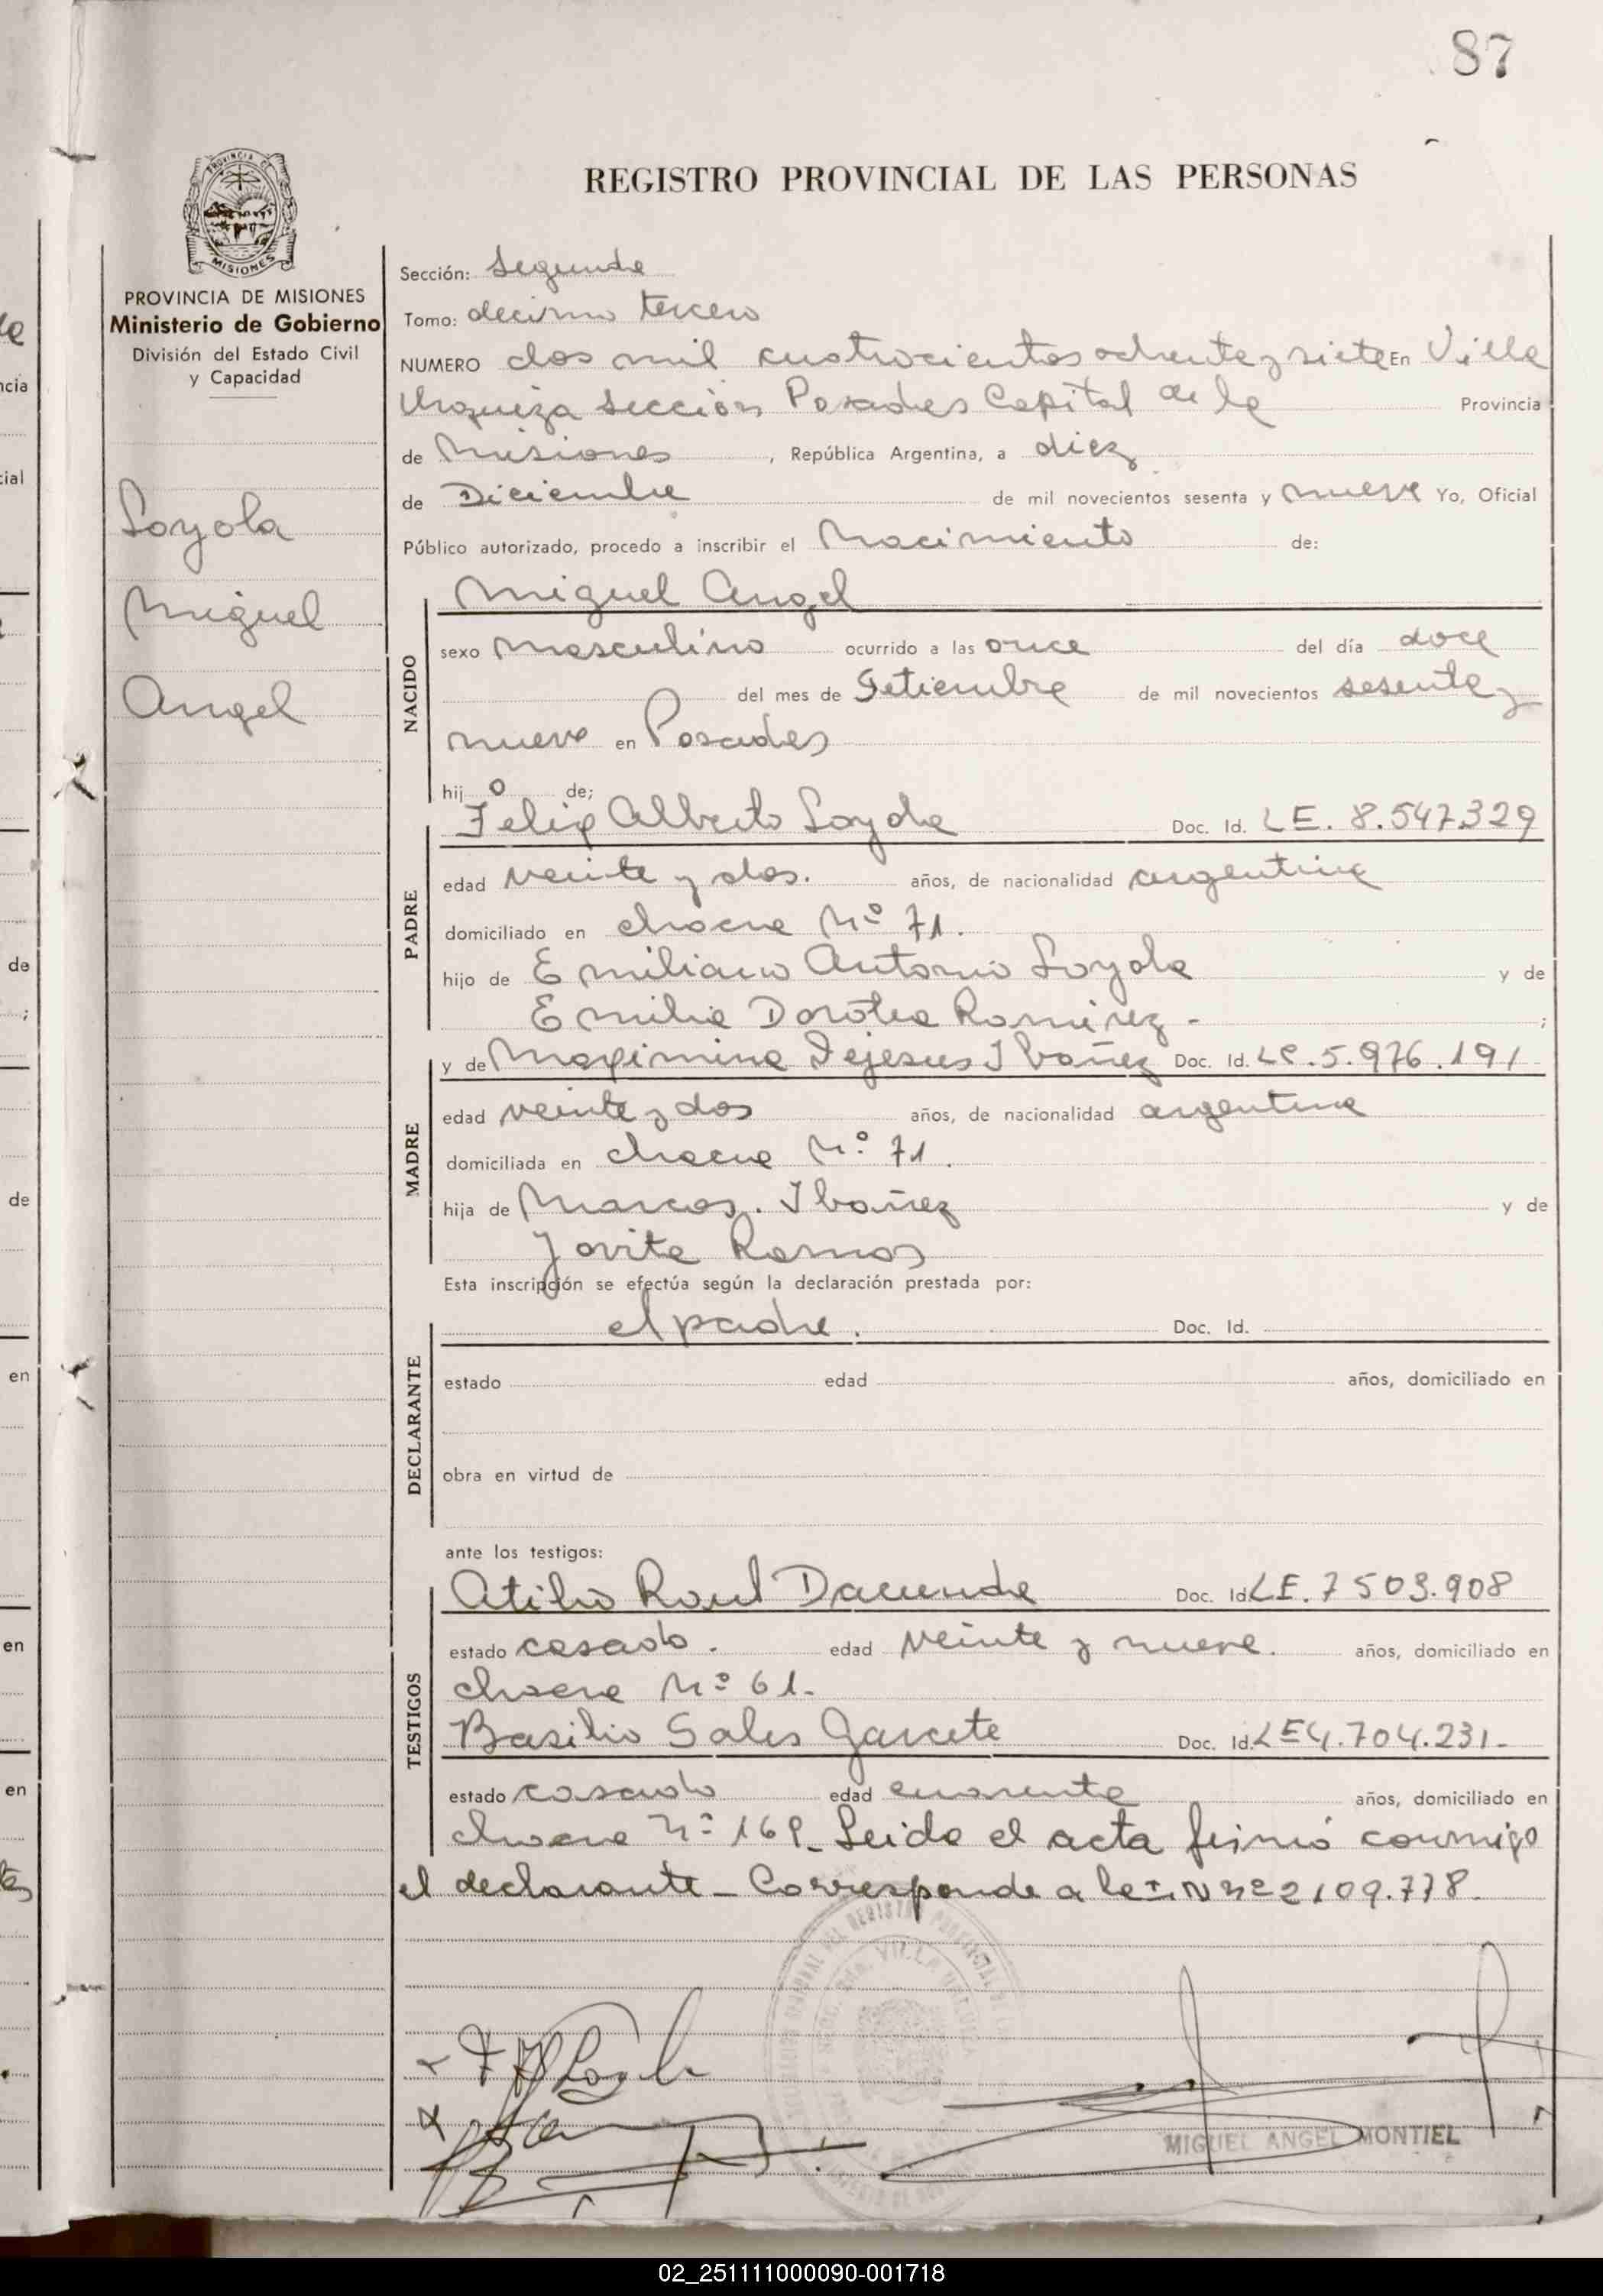 87
PROVINCIA DE
MISIONES
REGISTRO PROVINCIAL DE LAS PERSONAS
PROVINCIA DE MISIONES
Ministerio de Gobierno
División del Estado Civil
y Capacidad
Loyola
Miguel
Angel
Sección: Segunda
Tomo: decimo tercero
NUMERO dos mil cuatrocientos ochenta y siete En Villa
Urquiza Sección Posadas Capital de la Provincia
de Misiones, República Argentina, a diez
de Diciembre de mil novecientos sesenta y nueve Yo, Oficial
Público autorizado, procedo a inscribir el Nacimiento de:
NACIDO
Miguel Angel
sexo masculino ocurrido a las once del día doce
del mes de Setiembre de mil novecientos sesenta y
nueve en Posadas
hij o de;
PADRE
Felix Alberto Loyola Doc. Id. LE. 8.547.329
edad veinte y dos. años, de nacionalidad argentina
domiciliado en chacra Nº 71.
hijo de Emiliano Antonio Loyola y de
Emilia Dorotea Ramirez - ;
MADRE
y de Maximina Dejesus Ibañez Doc. Id. LC. 5.976.191
edad veinte y dos años, de nacionalidad argentina
domiciliada en chacra Nº 71.
hija de Marcos. Ibañez y de
Jovita Ramos
Esta inscripción se efectúa según la declaración prestada por:
DECLARANTE
el padre. Doc. Id.
estado edad años, domiciliado en
obra en virtud de
ante los testigos:
TESTIGOS
Atilio Raul Dacunda Doc. Id. LE. 7503.908
estado casado. edad veinte y nueve. años, domiciliado en
chacra Nº 61.
Basilio Sales Garcete Doc. Id. LE 4.704.231.
estado casado edad cuarenta años, domiciliado en
chacra Nº 169_ Leida el acta firmó conmigo
el declarante _ Corresponde a la I. N Nº 2109.778.
MIGUEL ANGEL MONTIEL
02_251111000090-001718